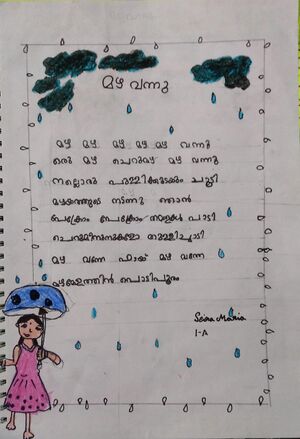 മഴ വന്നു
മഴ മഴ മഴ മഴ മഴ വന്നു
ഒരു മഴ ചെറുമഴ മഴ വന്നു
നല്ലൊരു പുള്ളിക്കുടയും ചൂടി
മഴയത്തൂടെ നടന്നു ഞാൻ
പേക്രോം പേക്രോം തവളകൾ പാടി
ചെറുമീനുകളോ തുള്ളിച്ചാടി
മഴ വന്നേ ഹായ് മഴ വന്നേ
മഴയത്തിൻ പൊടിപൂരം
Seira Maria
1-A